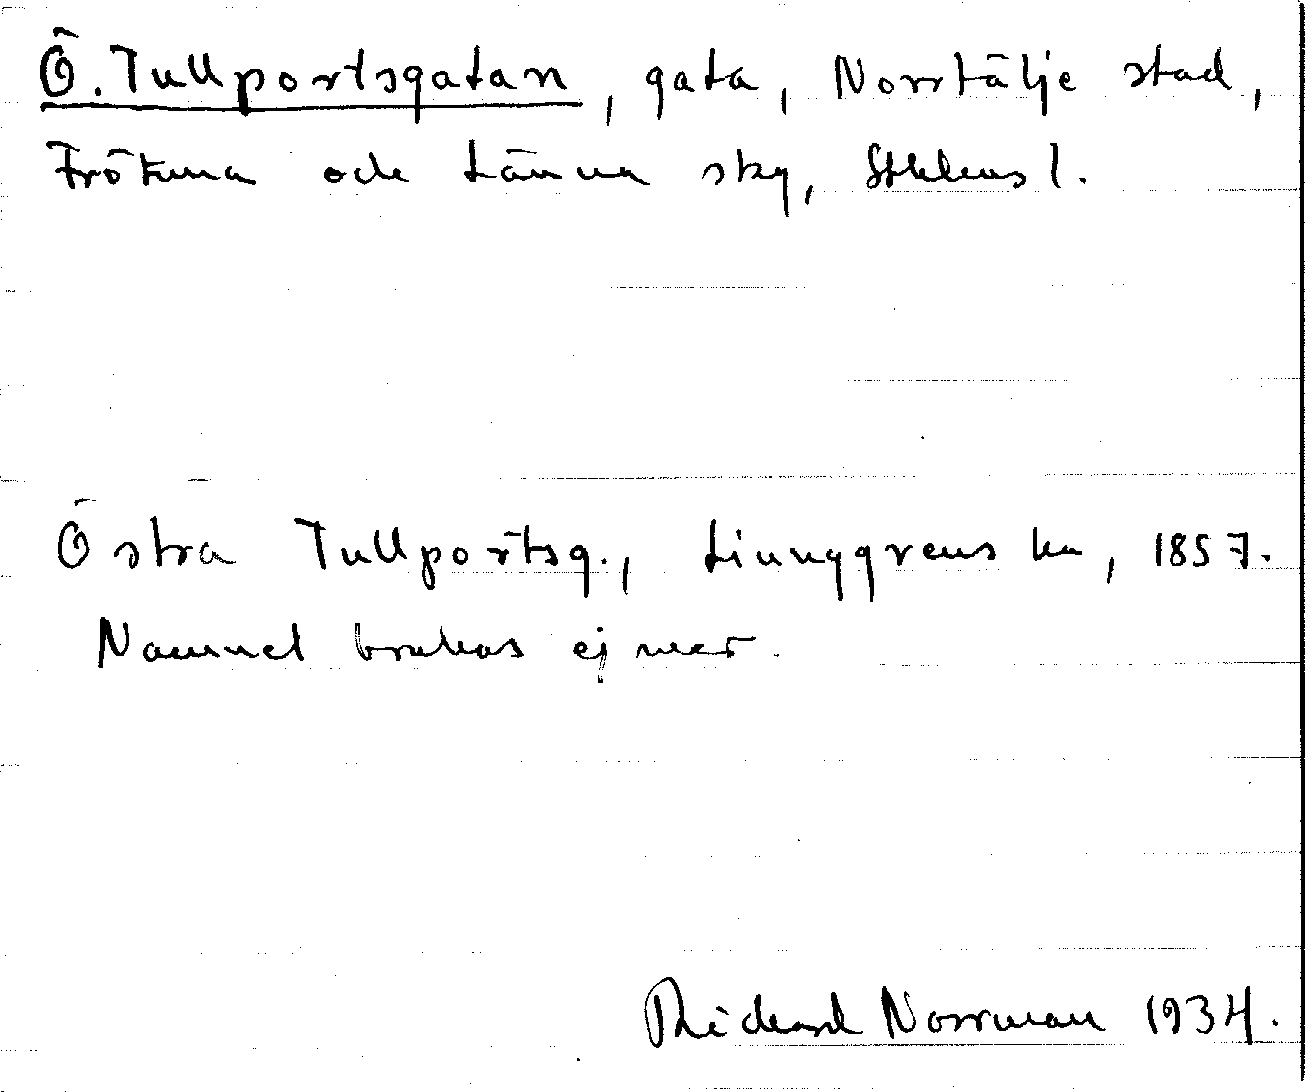 Ö. Tullportsgatan, gata, Norrtälje stad,
Frötuna och Länna skg, Sthlms l.
Östra Tullportsg., Ljunggrens ka, 1857.
Namnet brukas ej mer.
Rickard Norrman 1934.